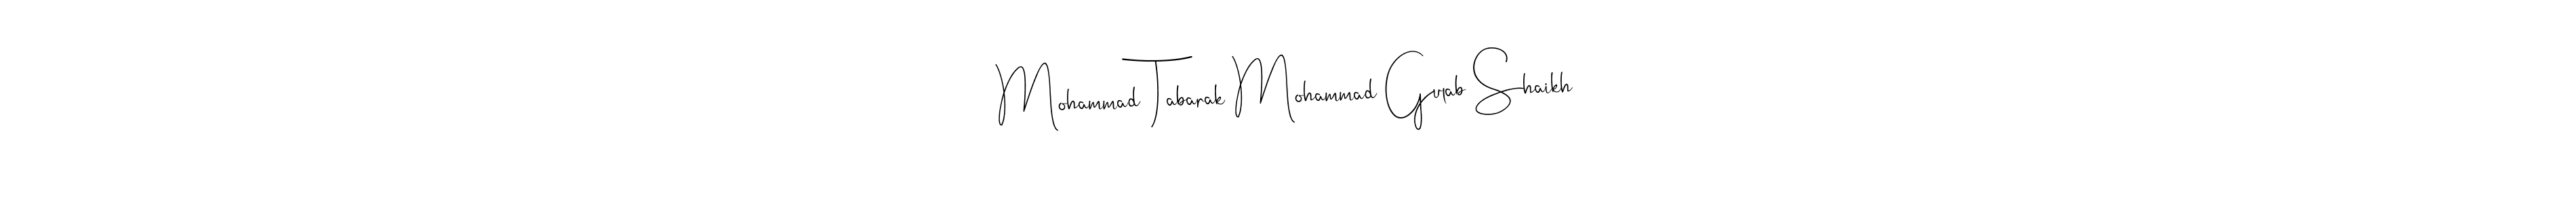 Mohammad Tabarak Mohammad Gulab Shaikh